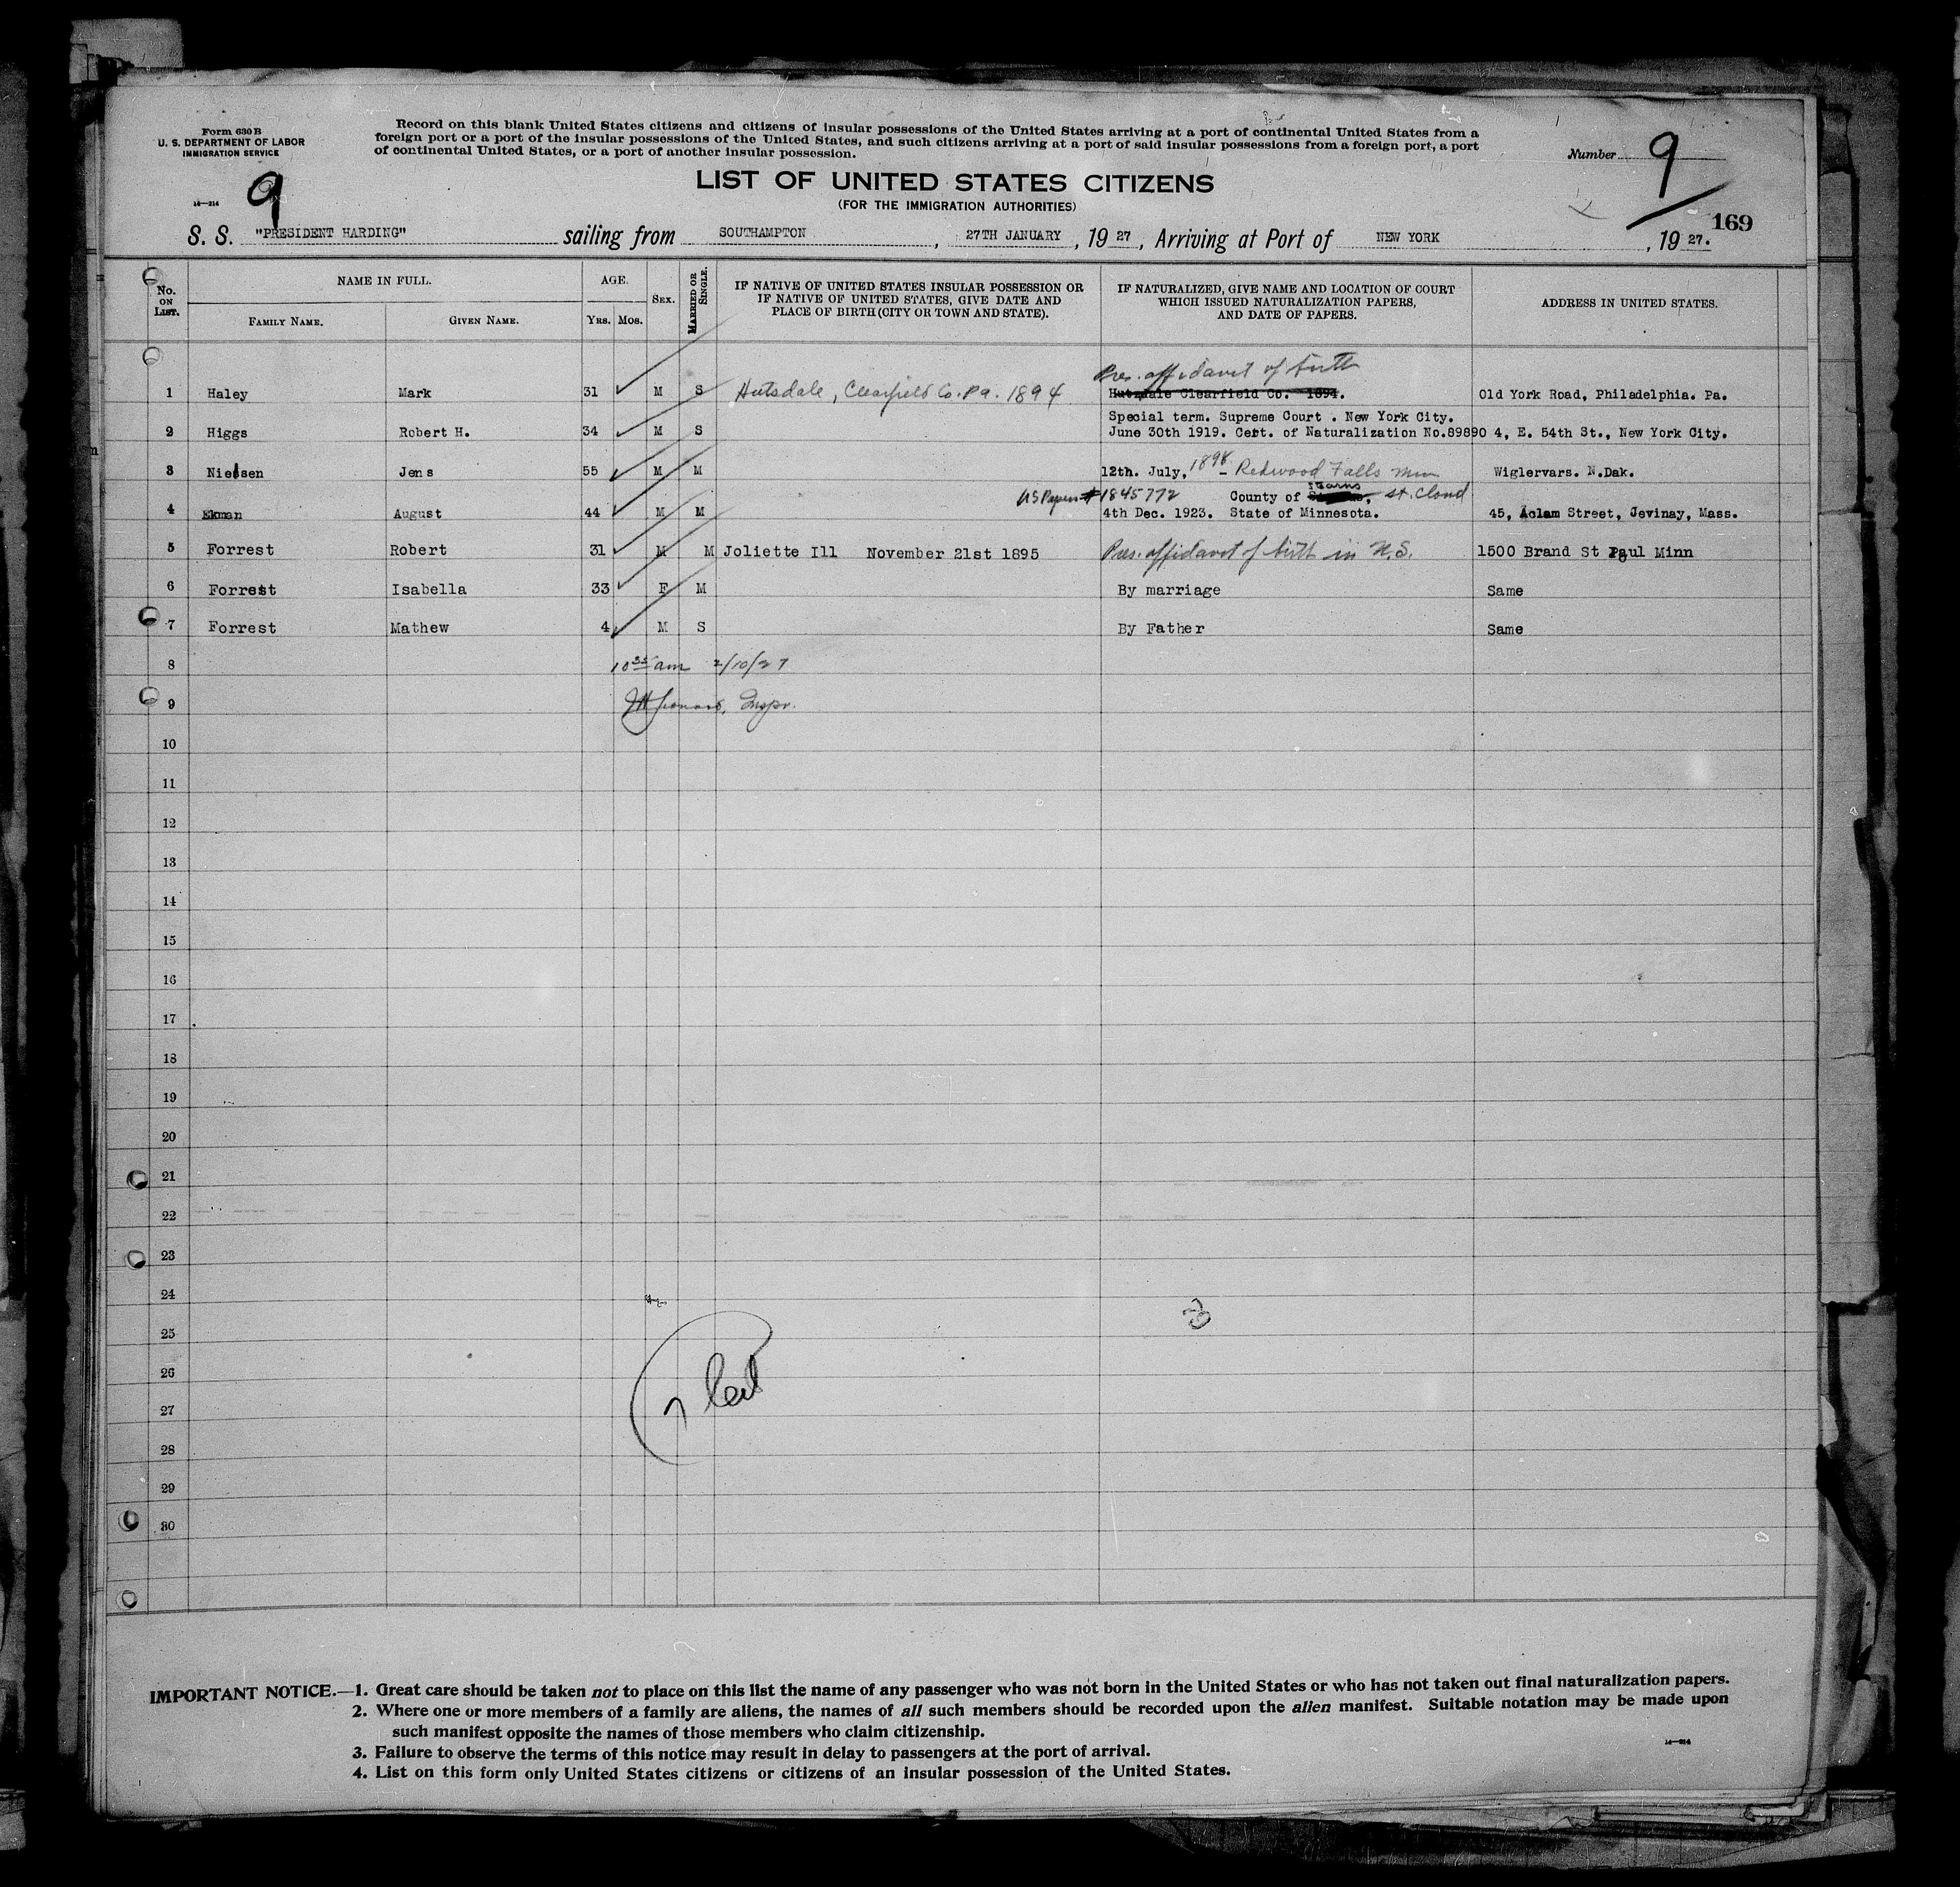 Form 630 B
U. S. DEPARTMENT OF LABOR
IMMIGRATION SERVICE
14—214
9
Record on this blank United States citizens and citizens of insular possessions of the United States arriving at a port of continental United States from a
foreign port or a port of the insular possessions of the United States, and such citizens arriving at a port of said insular possessions from a foreign port, a port
of continental United States, or a port of another insular possession.
Number 9
LIST OF UNITED STATES CITIZENS
(FOR THE IMMIGRATION AUTHORITIES)
169
S. S. "PRESIDENT HARDING" sailing from SOUTHAMPTON, 27TH JANUARY, 19 27, Arriving at Port of NEW YORK, 19 27.
No. ON LIST. NAME IN FULL. FAMILY NAME. GIVEN NAME. AGE. YRS. MOS. SEX. MARRIED OR SINGLE.
IF NATIVE OF UNITED STATES INSULAR POSSESSION OR
IF NATIVE OF UNITED STATES, GIVE DATE AND
PLACE OF BIRTH (CITY OR TOWN AND STATE).
IF NATURALIZED, GIVE NAME AND LOCATION OF COURT
WHICH ISSUED NATURALIZATION PAPERS,
AND DATE OF PAPERS.
ADDRESS IN UNITED STATES.
Pres. affidavit of birth
1 Haley Mark 31 M S Hutsdale, Clearfield Co. Pa. 1894 Hutzdale Clearfield Co. 1894. Old York Road, Philadelphia. Pa.
Special term. Supreme Court . New York City.
2 Higgs Robert H. 34 M S June 30th 1919. Cert. of Naturalization No.89890 4, E. 54th St., New York City.
3 Nielsen Jens 55 M M 12th. July, 1898 - Redwood Falls Minn Wiglervars. N.Dak.
US Papers # 1845772 County of Stearns, St. Cloud
4 Ekman August 44 M M 4th Dec. 1923. State of Minnesota. 45, Aclam Street, Jevinay, Mass.
5 Forrest Robert 31 M M Joliette Ill November 21st 1895 Pres. affidavit of birth in U.S. 1500 Brand St Paul Minn
6 Forrest Isabella 33 F M By marriage Same
7 Forrest Mathew 4 M S By Father Same
8 10 35 am 2/10/27
9 Inspr.
10
11
12
13
14
15
16
17
18
19
20
21
22
23
24
25
26
27
28
29
30
IMPORTANT NOTICE.—1. Great care should be taken not to place on this list the name of any passenger who was not born in the United States or who has not taken out final naturalization papers.
2. Where one or more members of a family are aliens, the names of all such members should be recorded upon the alien manifest. Suitable notation may be made upon
such manifest opposite the names of those members who claim citizenship.
3. Failure to observe the terms of this notice may result in delay to passengers at the port of arrival.
4. List on this form only United States citizens or citizens of an insular possession of the United States.
14—214